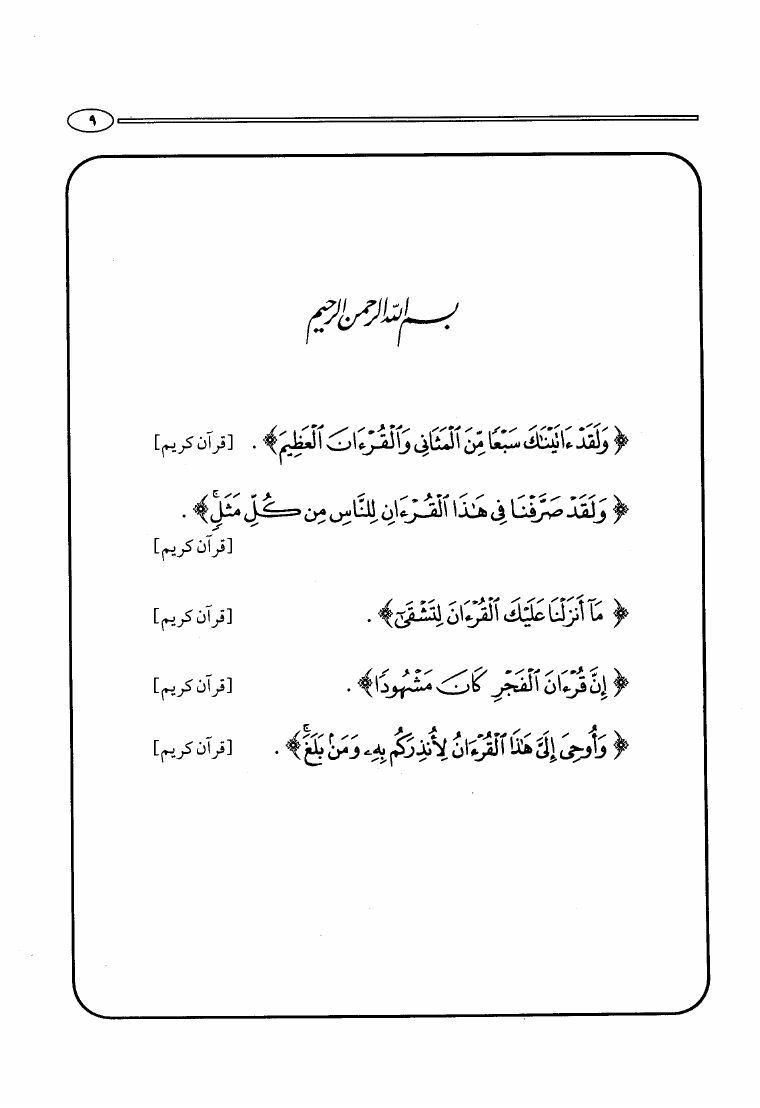 ٩
بسم الله الرحمن الرحيم
﴿ وَلَقَدْ ءَاتَيْنَٰكَ سَبْعًا مِّنَ ٱلْمَثَانِى وَٱلْقُرْءَانَ ٱلْعَظِيمَ ﴾ . [قرآن كريم]
﴿ وَلَقَدْ صَرَّفْنَا فِى هَٰذَا ٱلْقُرْءَانِ لِلنَّاسِ مِن كُلِّ مَثَلٍۚ ﴾ .
[قرآن كريم]
﴿ مَآ أَنزَلْنَا عَلَيْكَ ٱلْقُرْءَانَ لِتَشْقَىٰٓ ﴾ . [قرآن كريم]
﴿ إِنَّ قُرْءَانَ ٱلْفَجْرِ كَانَ مَشْهُودًا ﴾ . [قرآن كريم]
﴿ وَأُوحِىَ إِلَىَّ هَٰذَا ٱلْقُرْءَانُ لِأُنذِرَكُم بِهِۦ وَمَنۢ بَلَغَۚ ﴾ . [قرآن كريم]